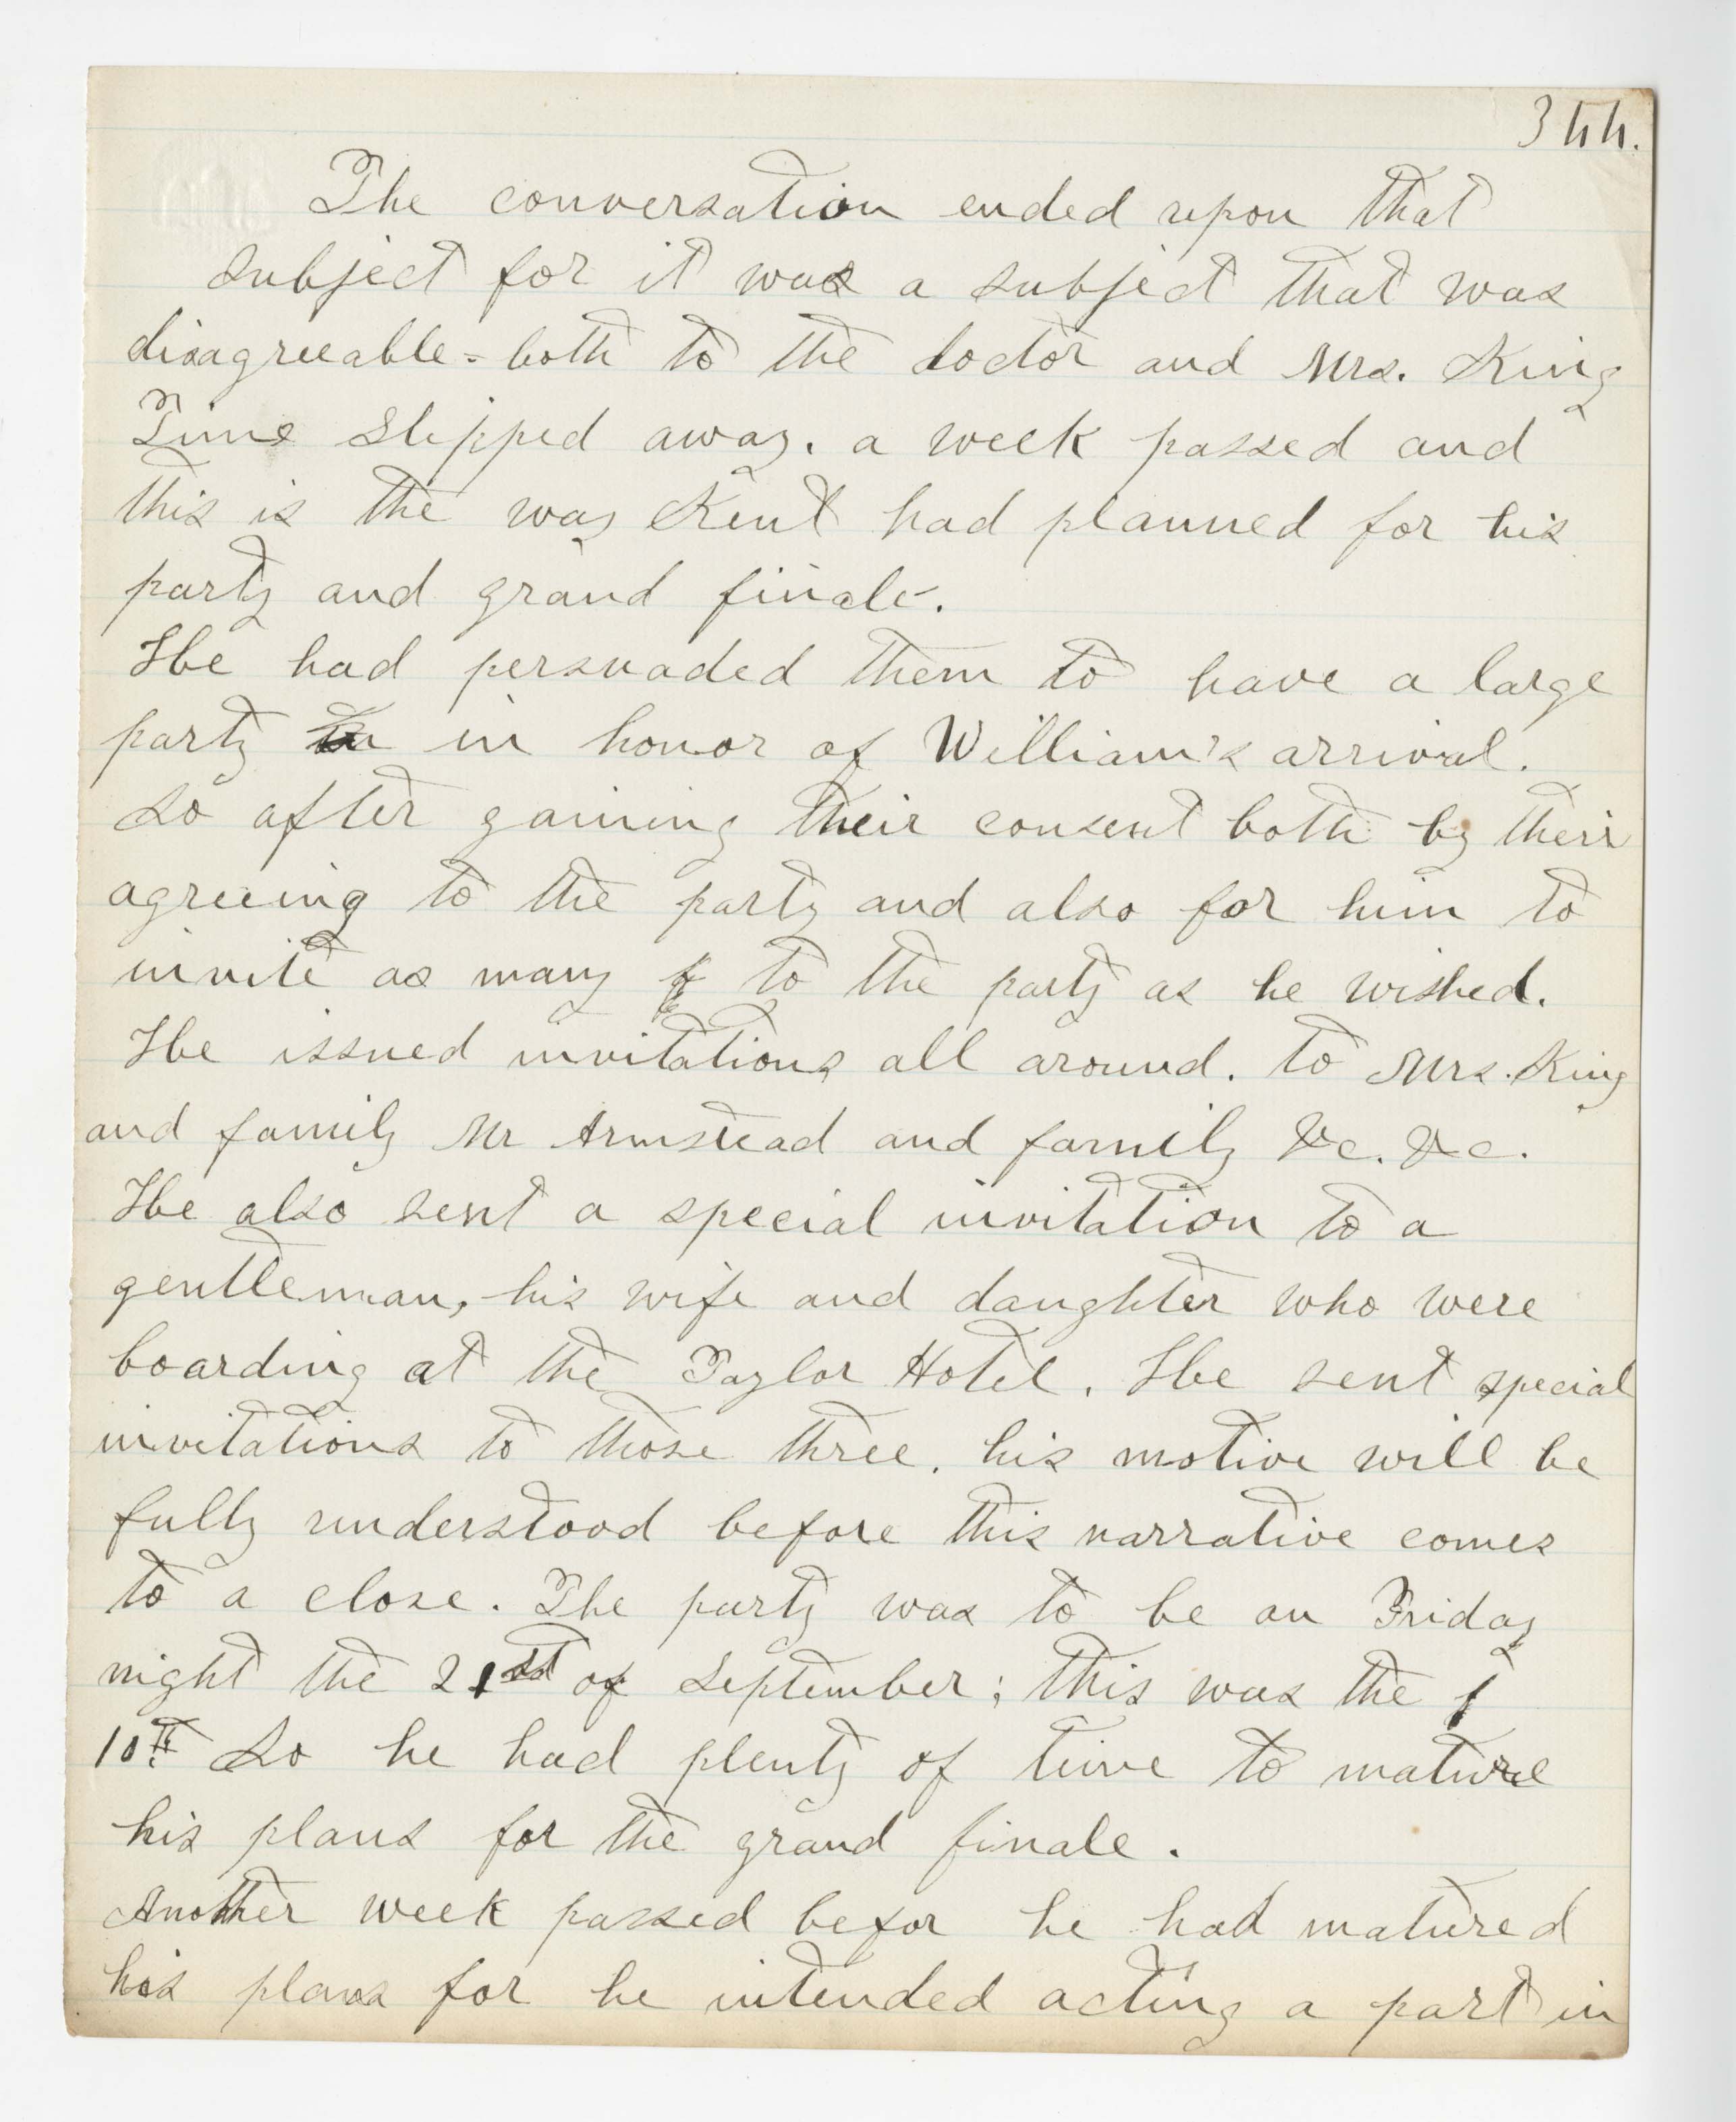 344.
The conversation ended upon that
subject for it was a subject that was
disagreeable - both to the doctor and Mrs. King
Time slipped away. a week passed and
this is the way Kent had planned for his
party and grand finale.
He had persuaded them to have a large
party in honor of William's arrival.
So after gaining their consent both by their
agreeing to the party and also for him to
invite as many to the party as he wished.
He issued invitations all around. to Mrs. King
and family Mr Armstead and family &c. &c.
He also sent a special invitation to a
gentleman, his wife and daughter who were
boarding at the Taylor Hotel. He sent special
invitations to those three. his motive will be
fully understood before this narrative comes
to a close. The party was to be on Friday
night the 21st of September; this was the
10th So he had plenty of time to mature
his plans for the grand finale.
Another week passed befor he had matured
his plans for he intended acting a part in